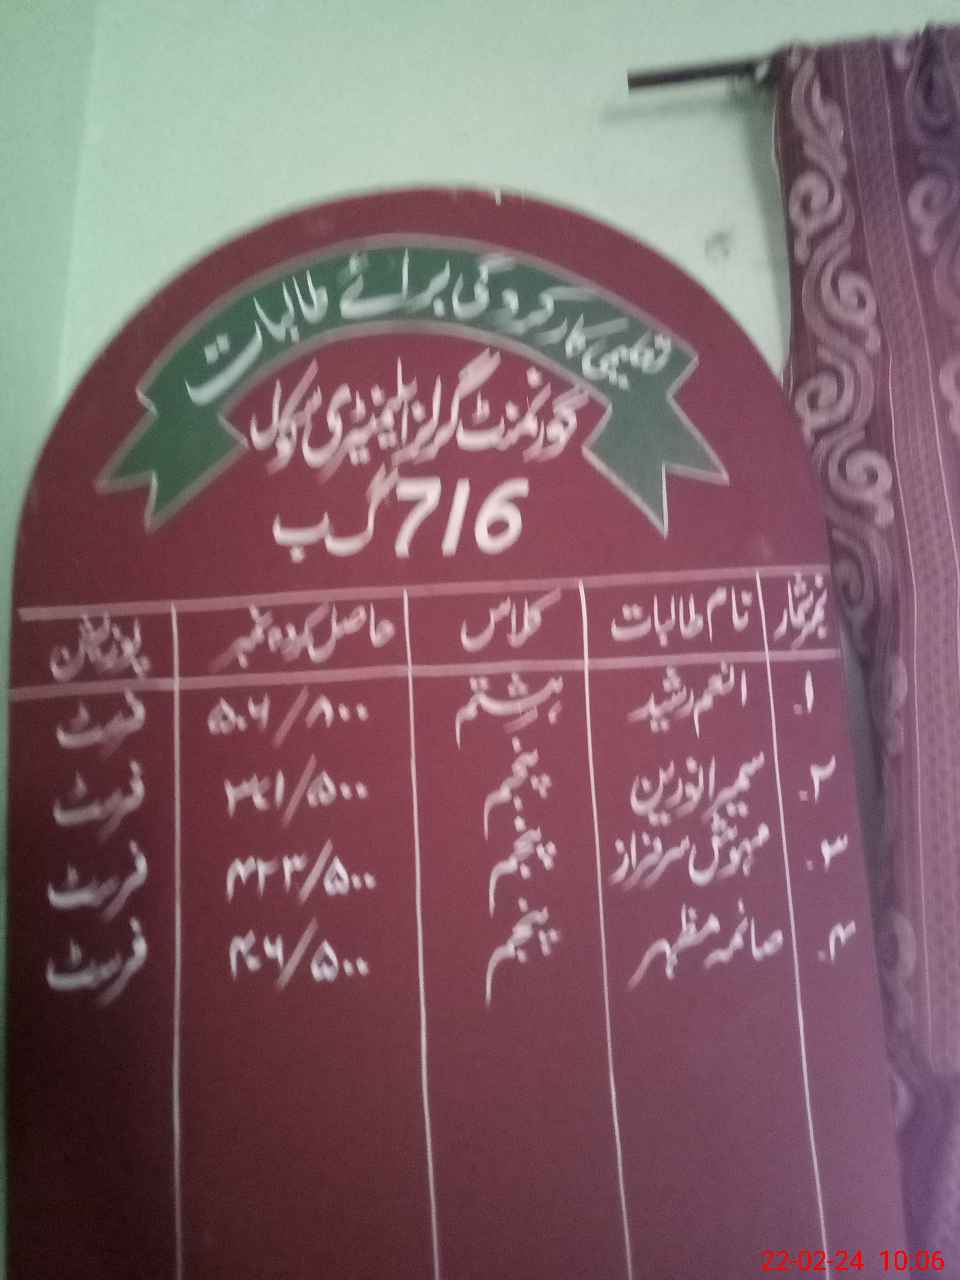 تعلیمی کارکردگی برائے طالبات
گورنمنٹ گرلز ایلیمنٹری سکول
716 گ ب
نمبر شمار نام طالبات کلاس حاصل کردہ نمبر پوزیشن
۱. انعم رشید ہشتم ۵۰۶/۸۰۰ فرسٹ
۲. سمیرا نورین پنجم ۳۴۱/۵۰۰ فرسٹ
۳. مہوش سرفراز پنجم ۴۲۳/۵۰۰ فرسٹ
۴. صائمہ مظہر پنجم ۴۰۶/۵۰۰ فرسٹ
22-02-24 10:06